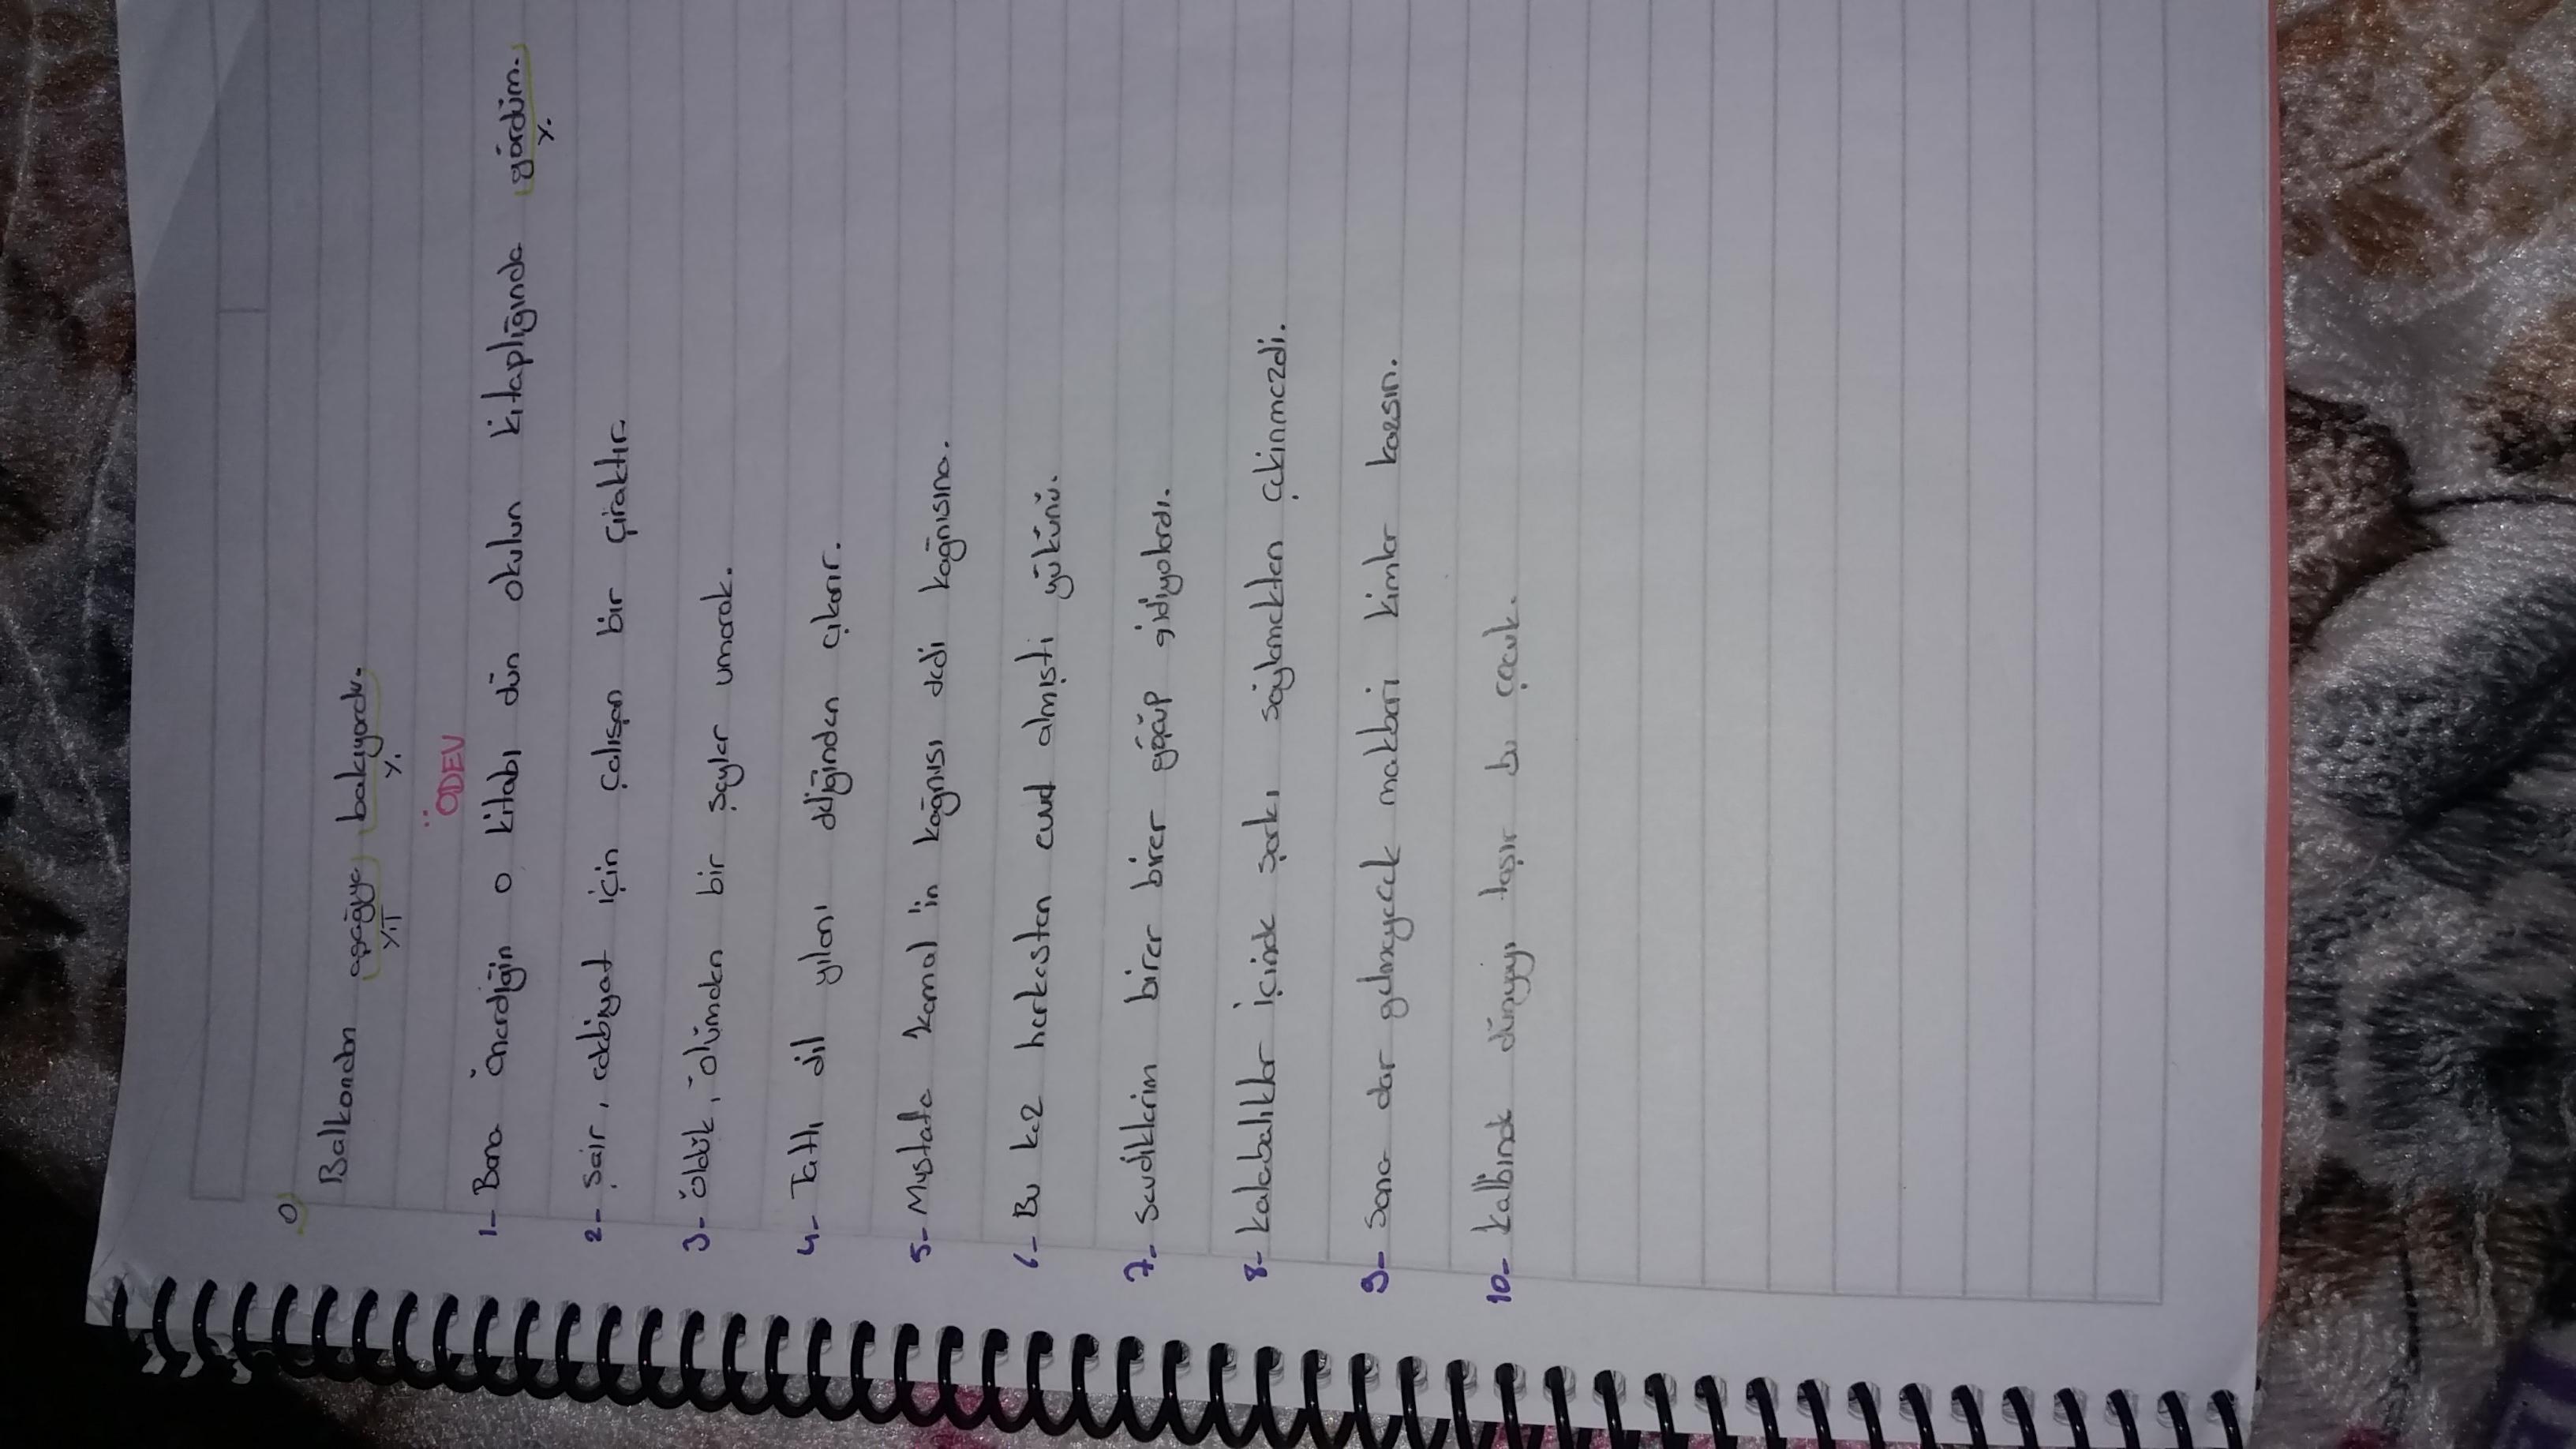 o)
Balkondan aşağıya bakıyordu.
Y.T Y.
ÖDEV
1- Bana önerdiğin o kitabı dün okulun kitaplığında gördüm.
Y.
2- Şair, edebiyat için çalışan bir çıraktır.
3- öldük, ölümden bir şeyler umarak.
4- Tatlı dil yılanı deliğinden çıkarır.
5- Mustafa Kemal'in kağnısı dedi kağnısına.
6- Bu kez herkesten evvel almıştı yükünü.
7- sevdiklerim birer birer göçüp gidiyolardı.
8- kalabalıklar içinde şarkı söylemekten çekinmezdi.
9- Sana dar gelmeyecek makberi kimler kazsın.
10- kalbinde dünyayı taşır bu çocuk.